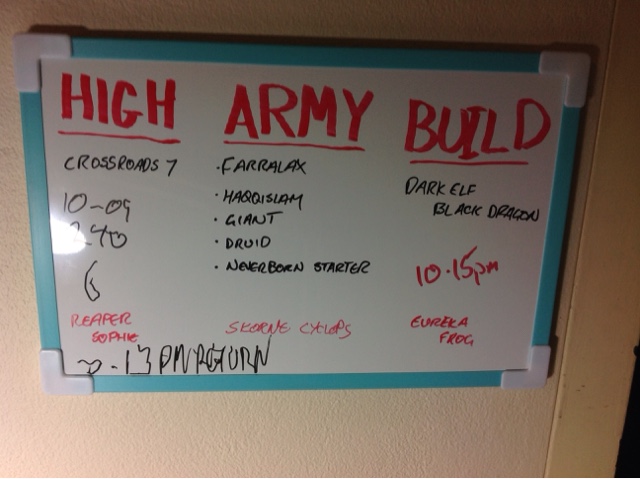 HIGH ARMY BUILD
CROSSROADS 7
10-09
240
6
REAPER
SOPHIE
· FARRALAX
· HAQQISLAM
· GIANT
· DRUID
· NEVERBORN STARTER
SKORNE CYCLOPS
DARK ELF
BLACK DRAGON
10.15pm
EUREKA
FROG